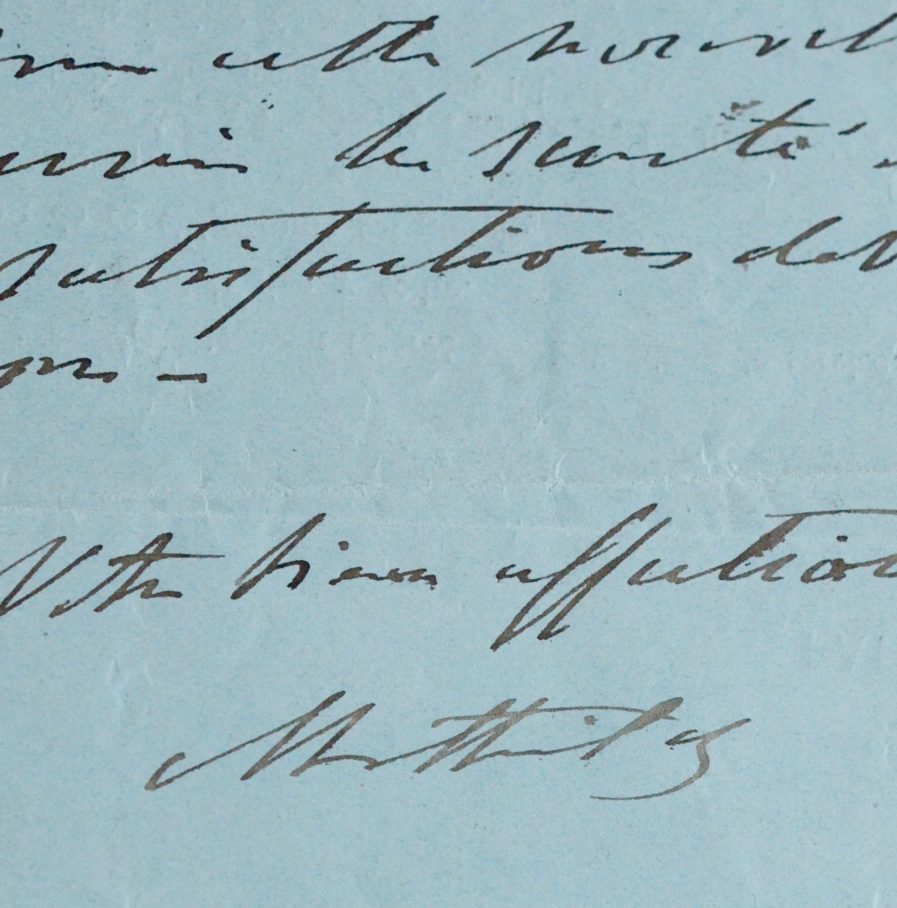 cette nouvel
la santé
satisfactions des
Votre bien affection
Mathilde